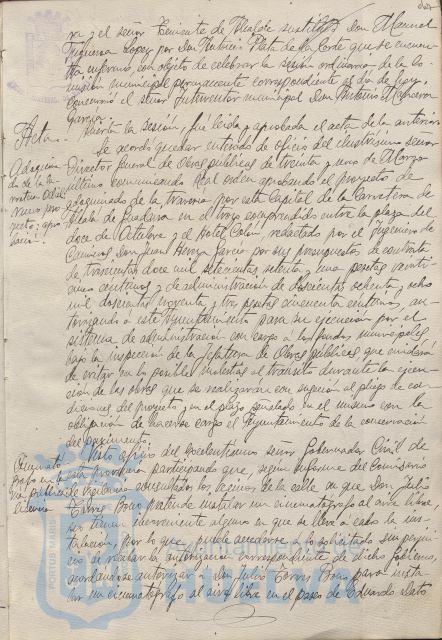 ra y el señor Teniente de Alcalde sustituto Don Manuel
Figueroa Lopez por Don Rubén Plata de la Corte que se encuen-
tra enfermo, con objeto de celebrar la sesión ordinaria de la Co-
misión municipal permanente correspondiente al dia de hoy.
Concurrió el señor Interventor municipal Don Antonio
Garcia.
Acta. Abierta la sesión, fué leida y aprobada el acta de la anterior
Adoquina- Se acordó quedar enterado de oficio del ilustrisimo señor
do de la ca- Director General de Obras públicas de treinta y uno de Marzo
rretera Odiel último comunicando Real orden aprobando el proyecto de
pro- adoquinado de la travesia por esta Capital de la Carretera de
yecto; apro- Alcalá de Guadaira en el trozo comprendido entre la plaza del
bación. doce de Octubre y el Hotel Colón, redactado por el Ingeniero de
Caminos Don Juan Garcia por sus presupuestos de contrata
de trescientas doce mil setecientas setenta y una pesetas veinti-
cinco centimos y de administración de doscientas ochenta y ocho
mil doscientas noventa y tres pesetas cincuenta centimos, au-
torizando a este Ayuntamiento para su ejecución por el
sistema de administración con cargo a los fondos municipales
bajo la inspección de la Jefatura de Obras públicas, que cuidará
de evitar en lo posible molestias al tránsito durante la ejecu-
ción de las obras que se realizarán con sujeción al pliego de con-
diciones del proyecto y en el plazo señalado en el mismo con la
obligación de hacerse cargo el Ayuntamiento de la conservación
del pavimento.
Cinemató- Visto oficio del Excelentisimo señor Gobernador Civil de
grafo en la esta provincia participando que, según informe del Comisario
via pública; de Vigilancia consultados los vecinos de la calle en que Don Julio
licencia. Torres Bono pretende instalar un cinematógrafo al aire libre,
no tienen inconveniente alguno en que se lleve a cabo la ins-
talación, por lo que puede accederse a lo solicitado sin perjui-
cio de recabar la autorización correspondiente de dicho Gobierno,
acordando autorizar a Don Julio Torres Bono para insta-
lar un cinematógrafo al aire libre en el paseo de Eduardo Dato
PORTUS MARIS
HUELVA